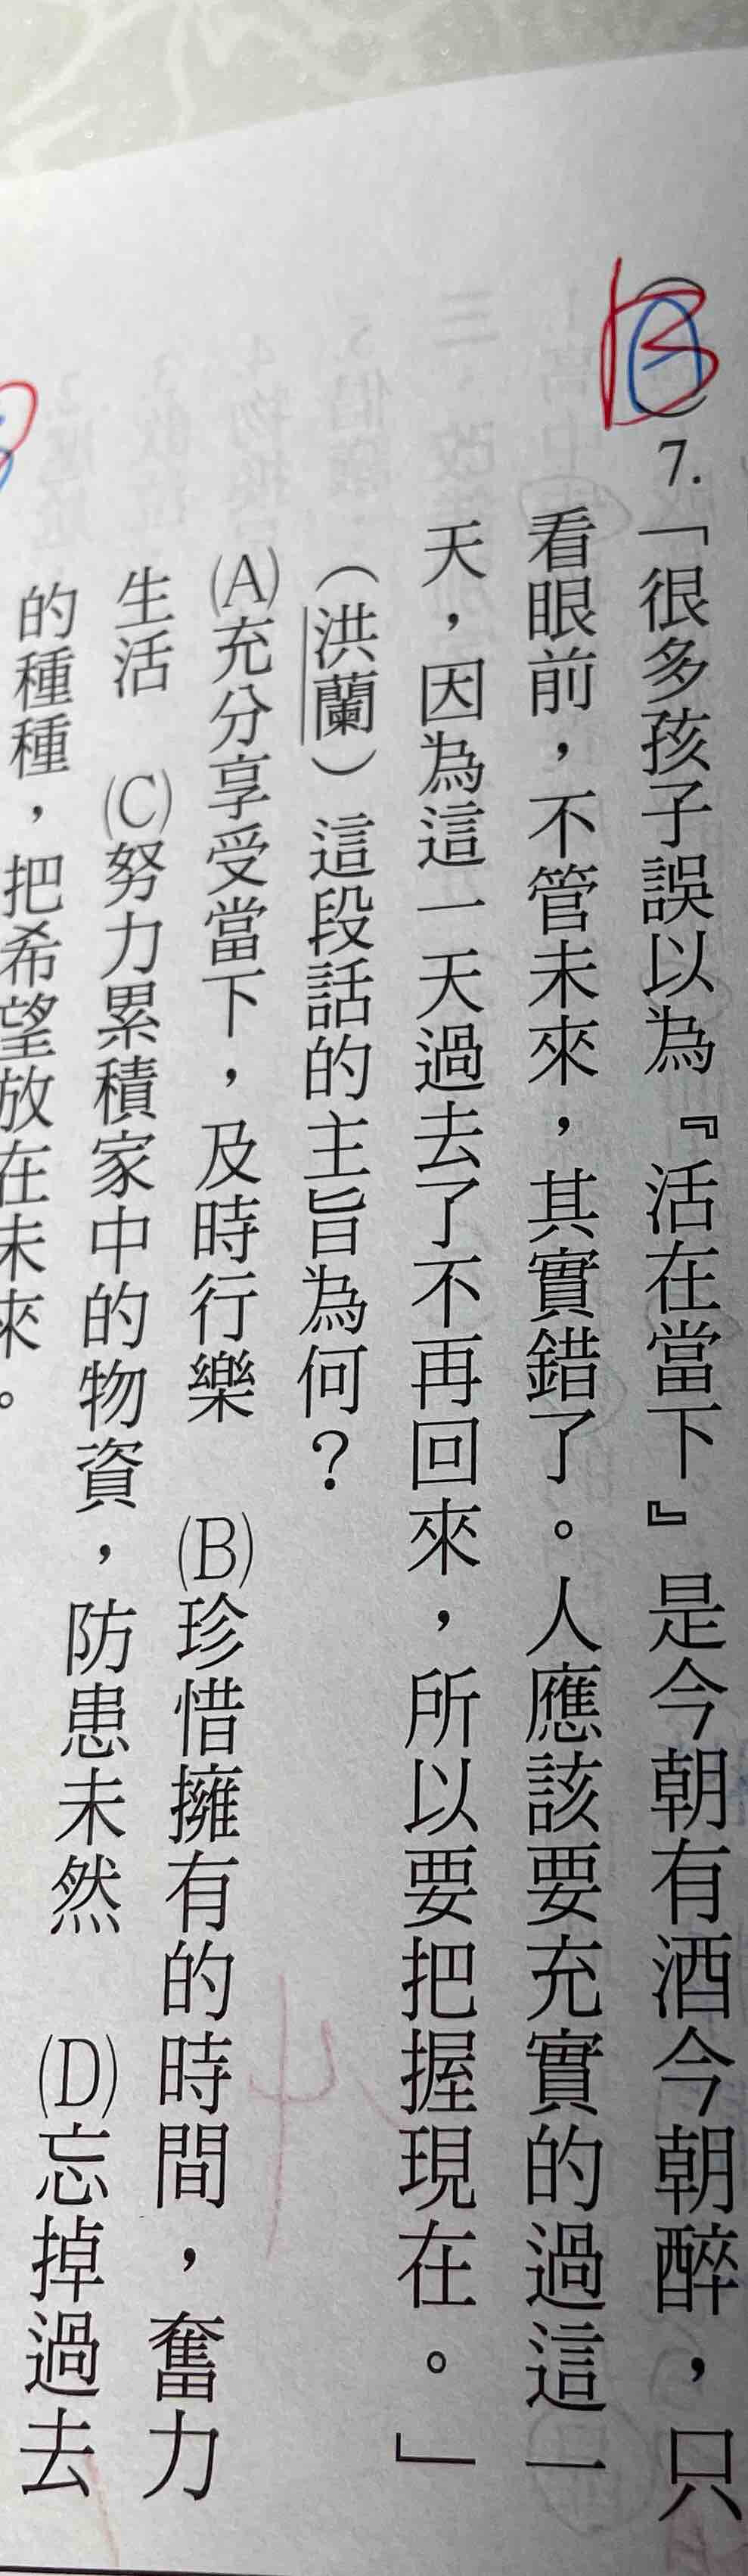 B
7.「很多孩子誤以為『活在當下』是今朝有酒今朝醉，只
看眼前，不管未來，其實錯了。人應該要充實的過這一
天，因為這一天過去了不再回來，所以要把握現在。」
（洪蘭）這段話的主旨為何？
(A)充分享受當下，及時行樂　(B)珍惜擁有的時間，奮力
生活　(C)努力累積家中的物資，防患未然　(D)忘掉過去
的種種，把希望放在未來。